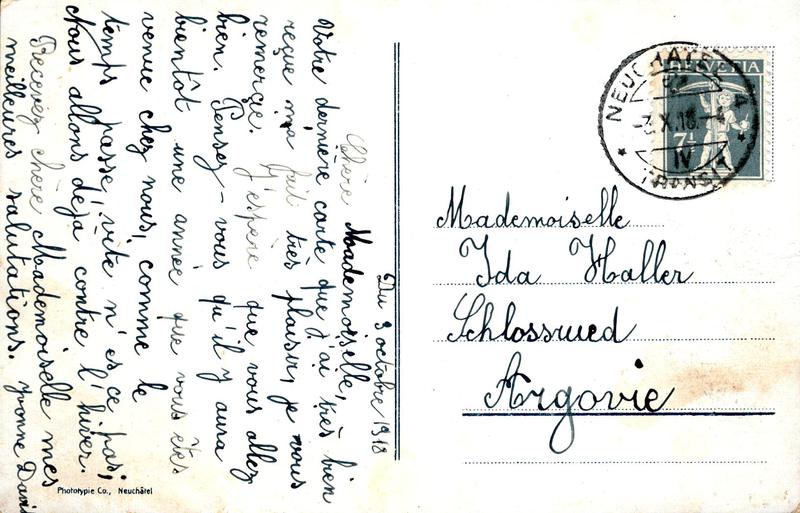 Du 3 octobre 1918
Chère Mademoiselle,
Votre dernière carte que j'ai très bien
reçue m'a fait très plaisir, je vous
remerçie. J'éspère que vous allez
bien. Pensez-vous qu'il y aura
bientôt une année que vous êtes
venue chez nous, comme le
temps passe, vite n'es ce pas;
Nous allons déjà contre l'hiver.
Recevez chère Mademoiselle mes
meilleures salutations. Yvonne
Phototypie Co., Neuchâtel
HELVETIA
7½
NEUCHATEL
3.X.18.-4
IV
TRANSIT
Mademoiselle
Ida Haller
Schlossrued
Argovie